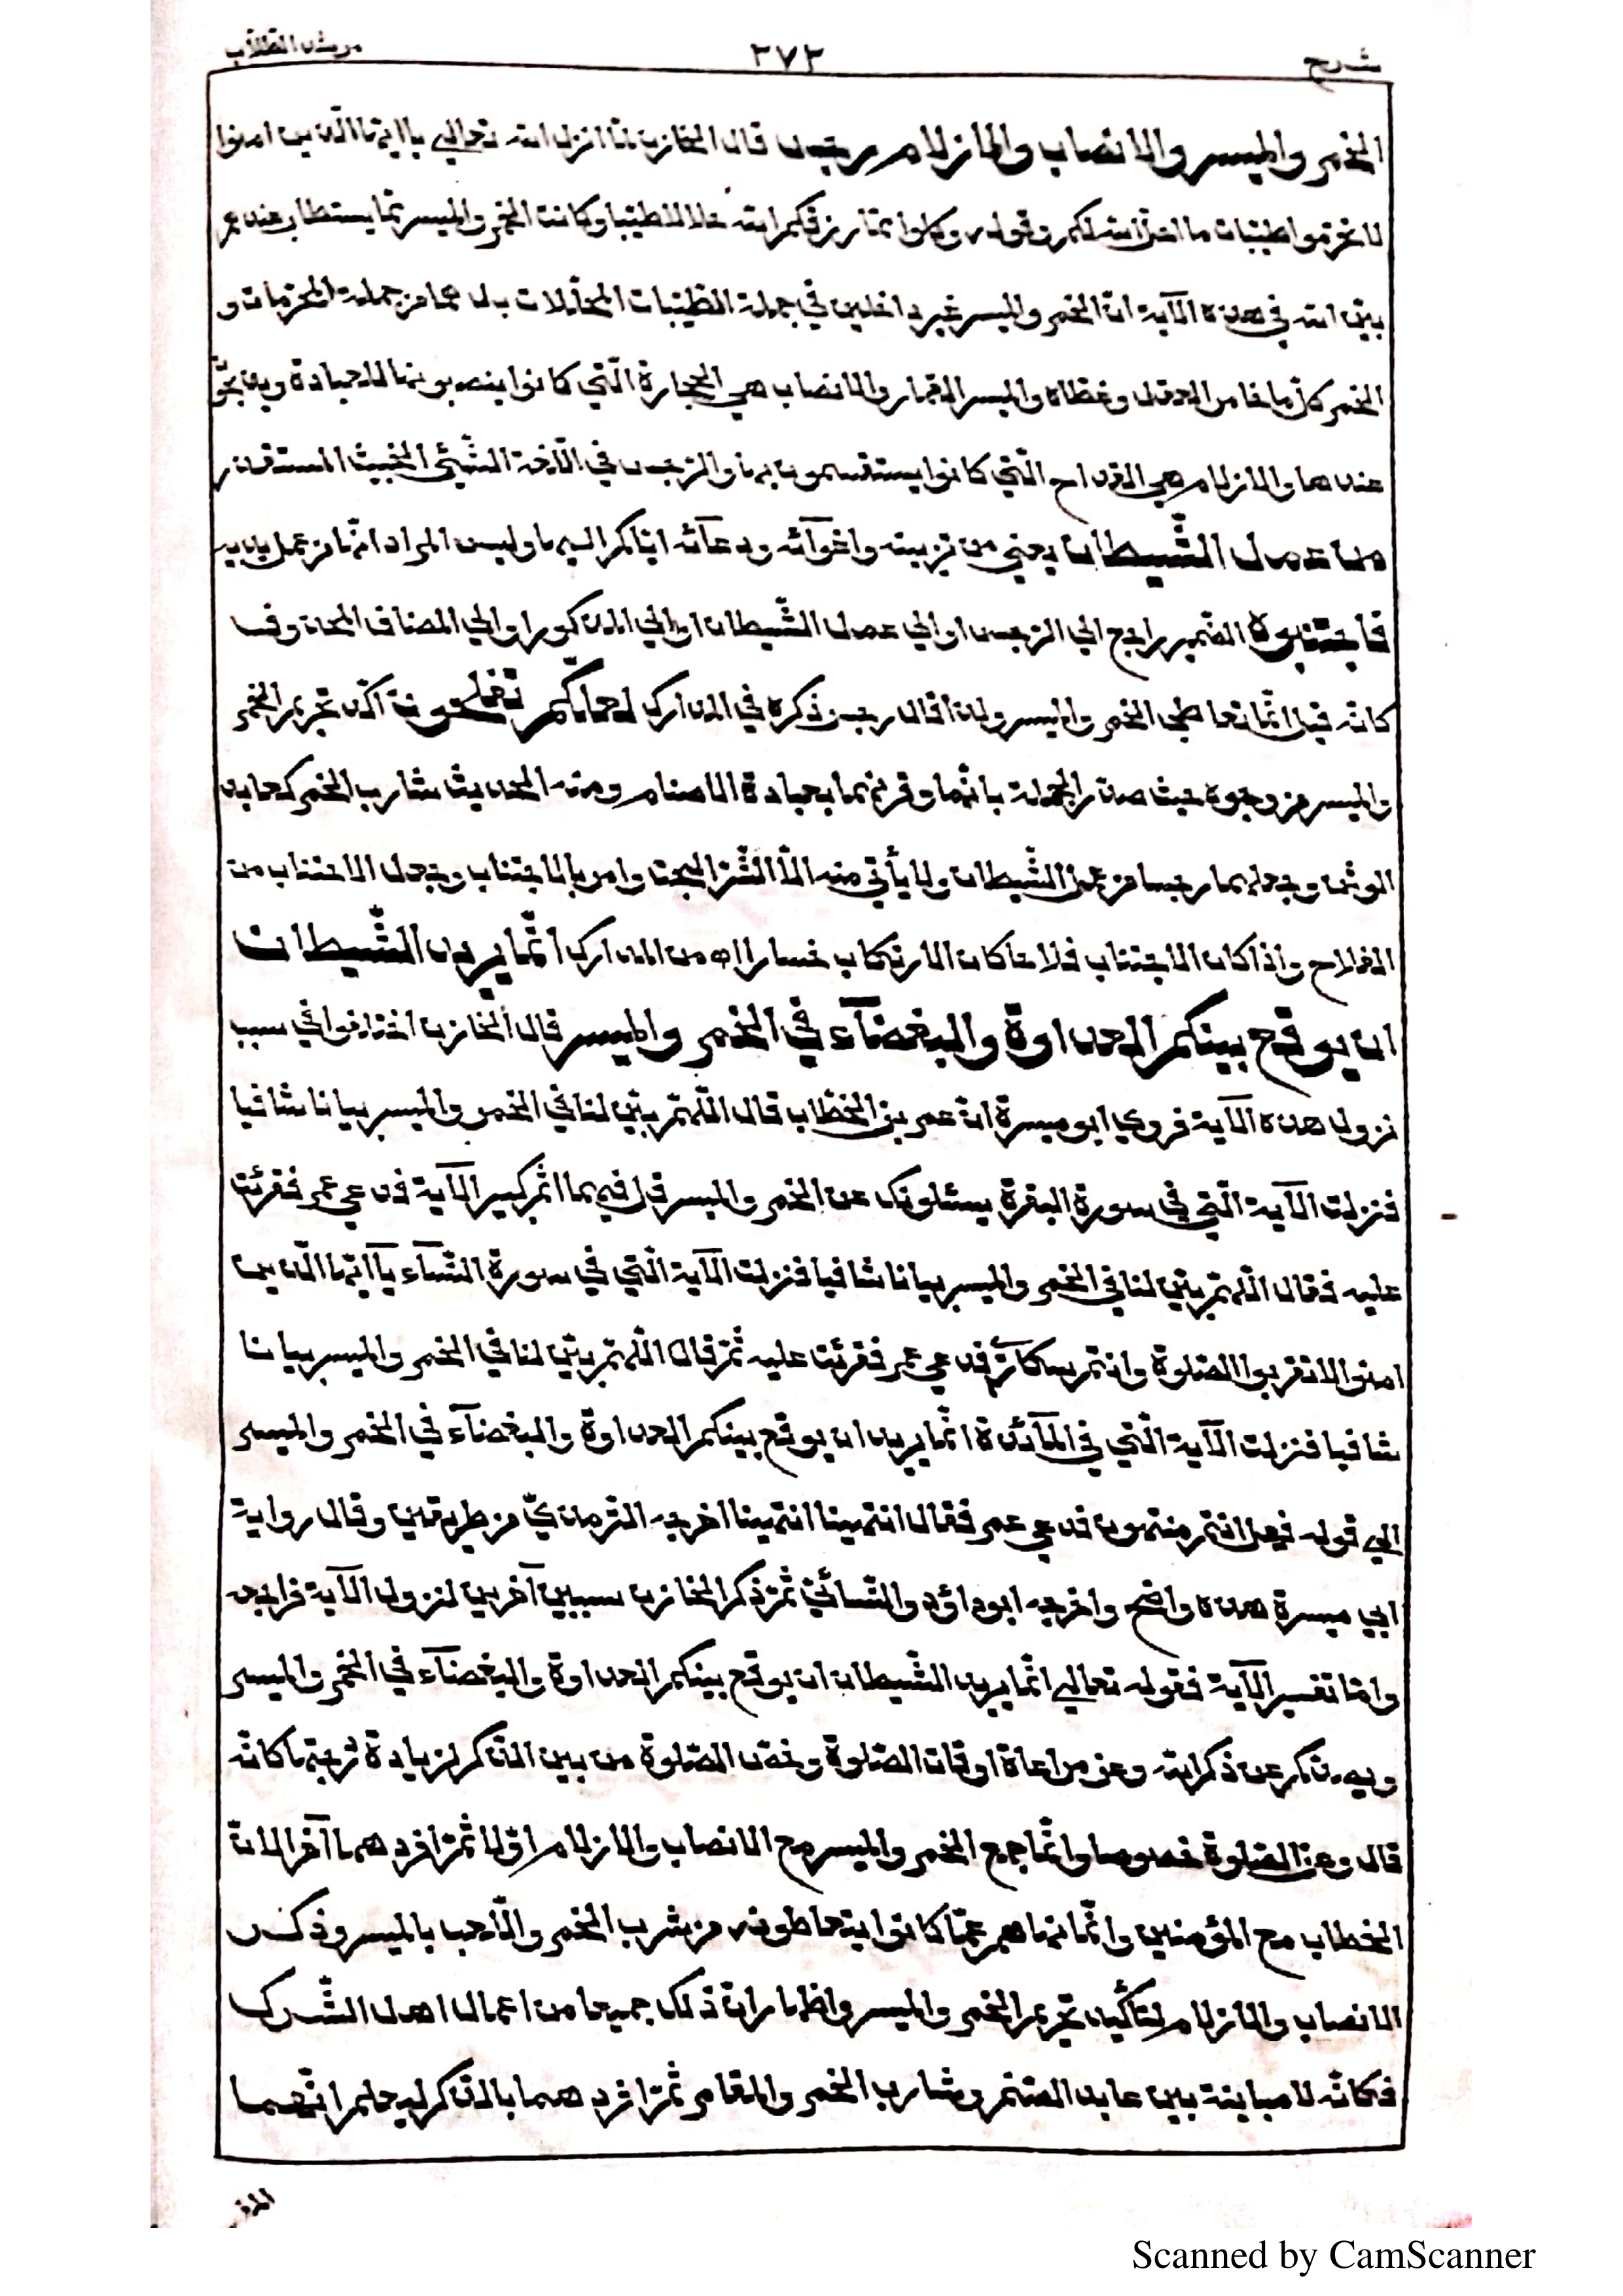 شرح ٣٧٢ مرشد الطلاب
الخمر والميسر والانصاب والازلام رجس قال الخازن لما انزل الله تعالى يا ايها الذين امنوا
لا تحرموا طيبات ما احل الله لكم وقوله وكلوا مما رزقكم الله حلالا طيبا وكانت الخمر والميسر مما يستطاب عندهم
بين الله في هذه الآية ان الخمر والميسر غير داخلين في جملة الطيبات المحللات بل هما من جملة المحرمات و
الخمر كل ما خامر العقل وغطاه والميسر القمار والانصاب هي الحجارة التي كانوا ينصبونها للعبادة ويذبحون
عندها والازلام هي القداح التي كانوا يستقسمون بها والرجس في اللّغة الشّيئ الخبيث المستقذر
من عمل الشّيطان يعني من تزيينه واغوآئه ودعآئه ايّاكم اليها وليس المراد انّها من عمل يديه
فاجتنبوه الضّمير راجع الي الرجس او الي عمل الشّيطان او الي المذكور او الي المضاف المحذوف
كانّه قيل انّما تعاطي الخمر والميسر ولذا قال رجس ذكره في المدارك لعلّكم تفلحون اكّد تحريم الخمر
والميسر من وجوه حيث صدّر الجملة بانّما وقرنهما بعبادة الاصنام ومنه الحديث شارب الخمر كعابد
الوثن وجعلهما رجسا من عمل الشّيطان ولا يأتي منه الّا الشّرّ البحت وامر بالاجتناب وجعل الاجتناب من
الفلاح واذا كان الاجتناب فلاحا كان الارتكاب خسارا اه من المدارك انّما يريد الشّيطان
ان يوقع بينكم العداوة والبغضآء في الخمر والميسر قال الخازن اختلفوا في سبب
نزول هذه الآية فروي ابو ميسرة انّ عمر بن الخطّاب قال اللّهمّ بيّن لنا في الخمر والميسر بيانا شافيا
فنزلت الآية الّتي في سورة البقرة يسئلونك عن الخمر والميسر قل فيهما اثم كبير الآية فدعي عمر فقرئت
عليه فقال اللّهمّ بيّن لنا في الخمر والميسر بيانا شافيا فنزلت الآية الّتي في سورة النّسآء يآ ايّها الّذين
امنوا لا تقربوا الصّلوة وانتم سكارٰي فدعي عمر فقرئت عليه ثمّ قال اللّهمّ بيّن لنا في الخمر والميسر بيانا
شافيا فنزلت الآية الّتي في المآئدة انّما يريد ان يوقع بينكم العداوة والبغضآء في الخمر والميسر
الي قوله فهل انتم منتهون فدعي عمر فقال انتهينا انتهينا اخرجه التّرمذيّ من طريقين وقال رواية
ابي ميسرة هذه واضح واخرجه ابو داؤد والنّسائيّ ثمّ ذكر الخازن سببين آخرين لنزول الآية فراجعه
وامّا تفسير الآية فقوله تعالي انّما يريد الشّيطان ان يوقع بينكم العداوة والبغضآء في الخمر والميسر
ويصدّكم عن ذكر الله وعن مراعاة اوقات الصّلوة وخصّ الصّلوة من بين الذّكر لزيادة درجتها كانّه
قال وعن الصّلوة خصوصا وانّما جمع الخمر والميسر مع الانصاب والازلام اوّلا ثمّ افردهما آخرا لانّ
الخطاب مع المؤمنين وانّما نهاهم عمّا كانوا يتعاطونه من شرب الخمر واللّعب بالميسر وذكر
الانصاب والازلام لتأكيد تحريم الخمر والميسر واظهار انّ ذلك جميعا من اعمال اهل الشّرك
فكانّه لا مباينة بين عابد الصّنم وشارب الخمر والمقامر ثمّ افردهما بالذّكر ليعلم انّهما
Scanned by CamScanner